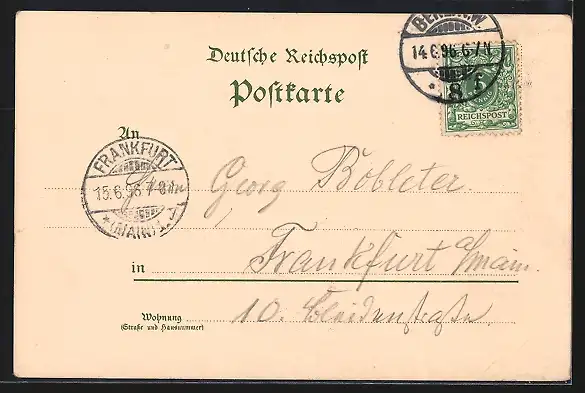 BERLIN.W.
14.6.96.6-7N.
* 8 f
REICHSPOST
Deutsche Reichspost
Postkarte
An
FRANKFURT
15.6.96 7-8V.
* (MAIN) 1.
Georg Böbleter.
in Frankfurt a/main.
10. Bleidenstraße,
Wohnung
(Straße und Hausnummer)